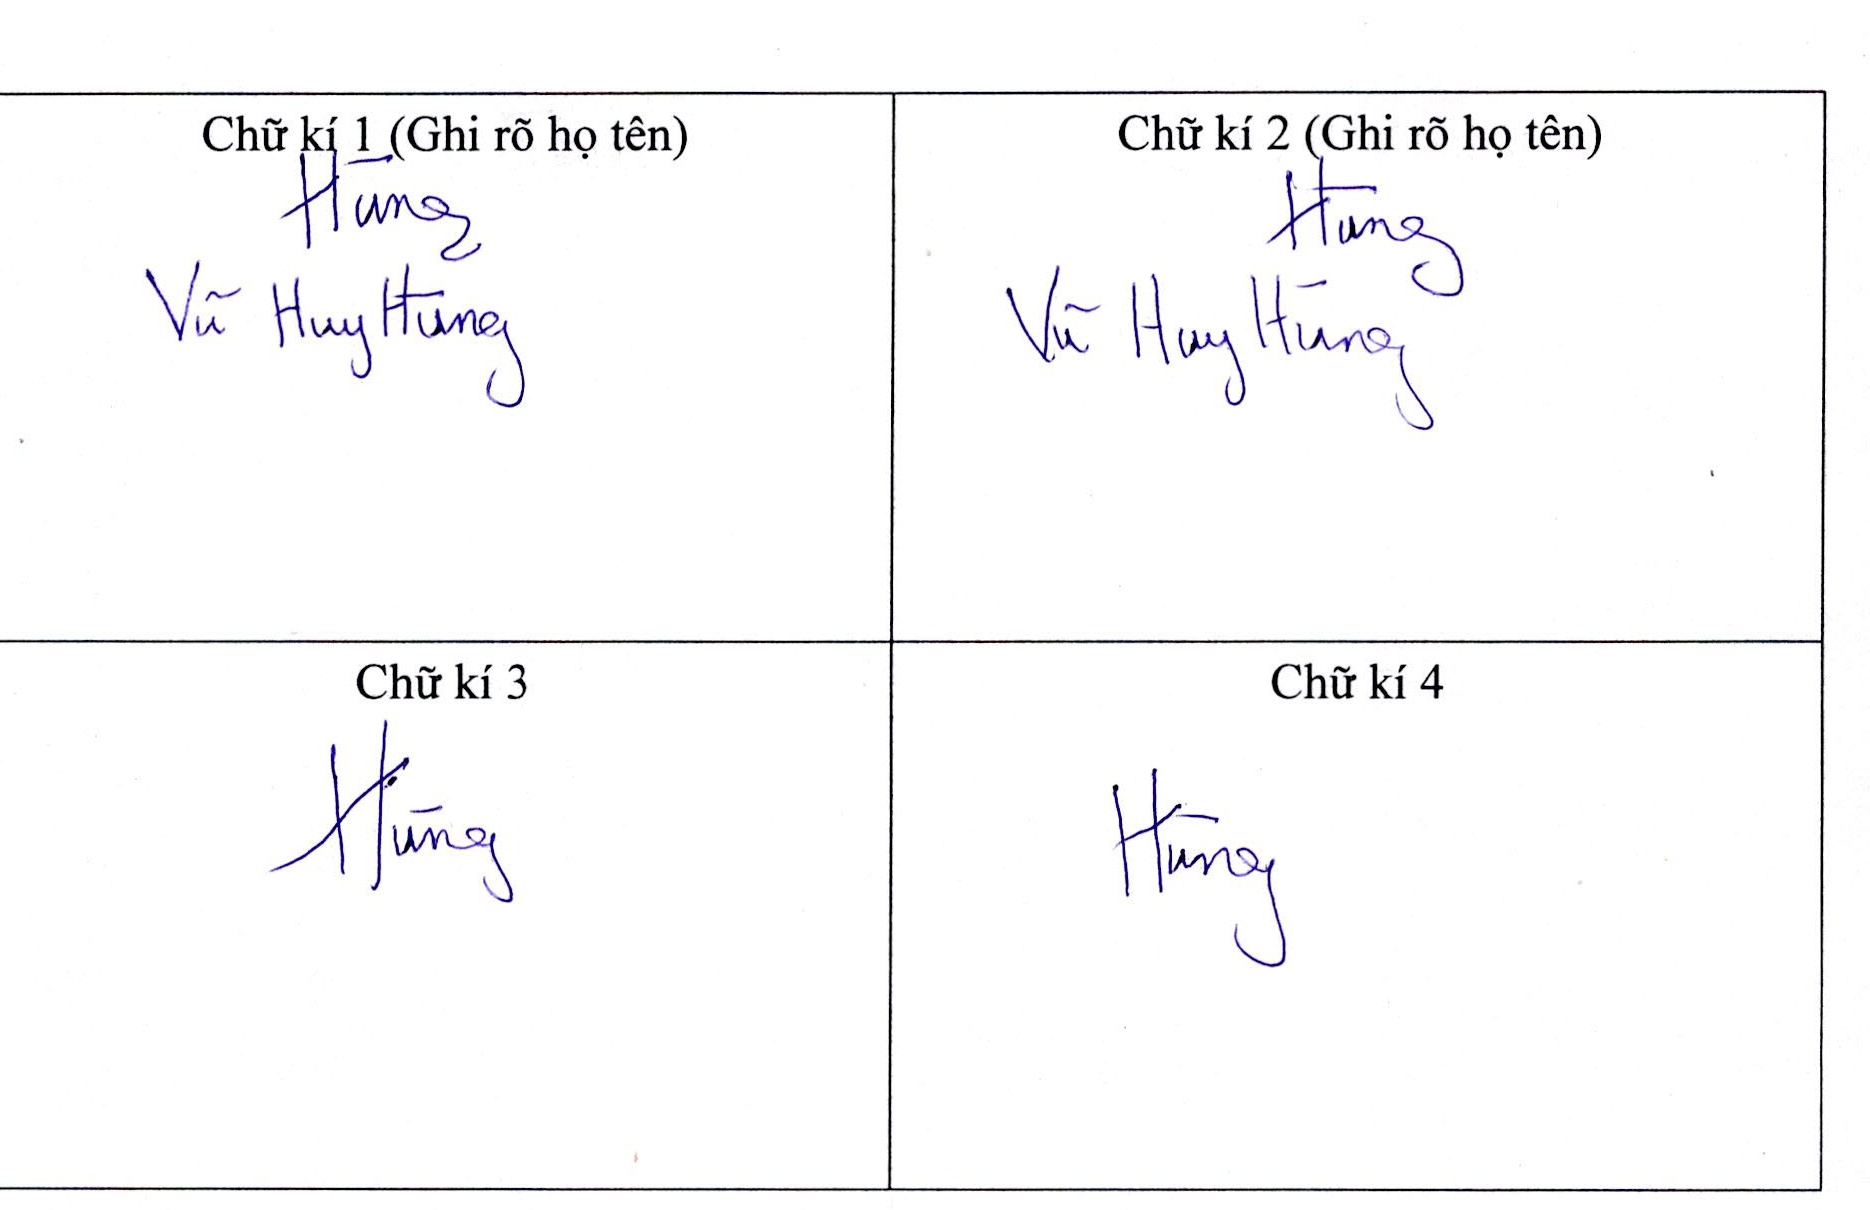 Chữ kí 1 (Ghi rõ họ tên)
Hùng
Vũ Huy Hùng
Chữ kí 2 (Ghi rõ họ tên)
Hùng
Vũ Huy Hùng
Chữ kí 3
Hùng
Chữ kí 4
Hùng